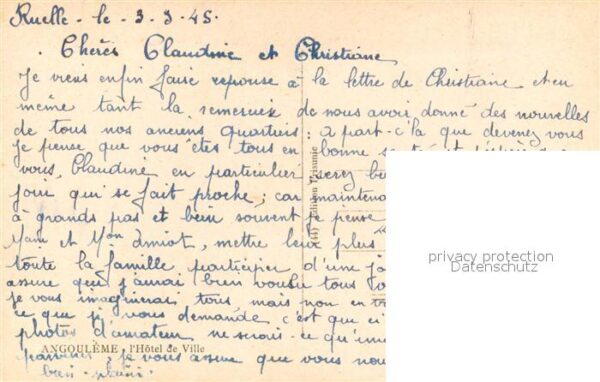 Ruelle - le - 3-3-45.
Chères Claudine et Christiane
Je viens enfin faire reponse à la lettre de Christiane et en
même tant la remercier de nous avoir donné des nouvelles
de tous nos anciens quartiers : à part-c'la que devenez vous
je pense que vous êtes tous en bonne
vous, Claudine en particulier serez
jour qui se fait proche; car maintenant
à grands pas et bien souvent je pense
et Mon Amiot, mettre leur plus
toute la famille participer d'une
assure que j'aurai bien voulu tous
je vous imaginerais tous mais non en
ce que je vous demande c'est que
photos d'amateur ne serais-ce qu'une
ANGOULÊME - l'Hôtel de Ville
parvenir, je vous assure que vous nous
bien plaisir.
(44) Edition Prisunic
privacy protection
Datenschutz